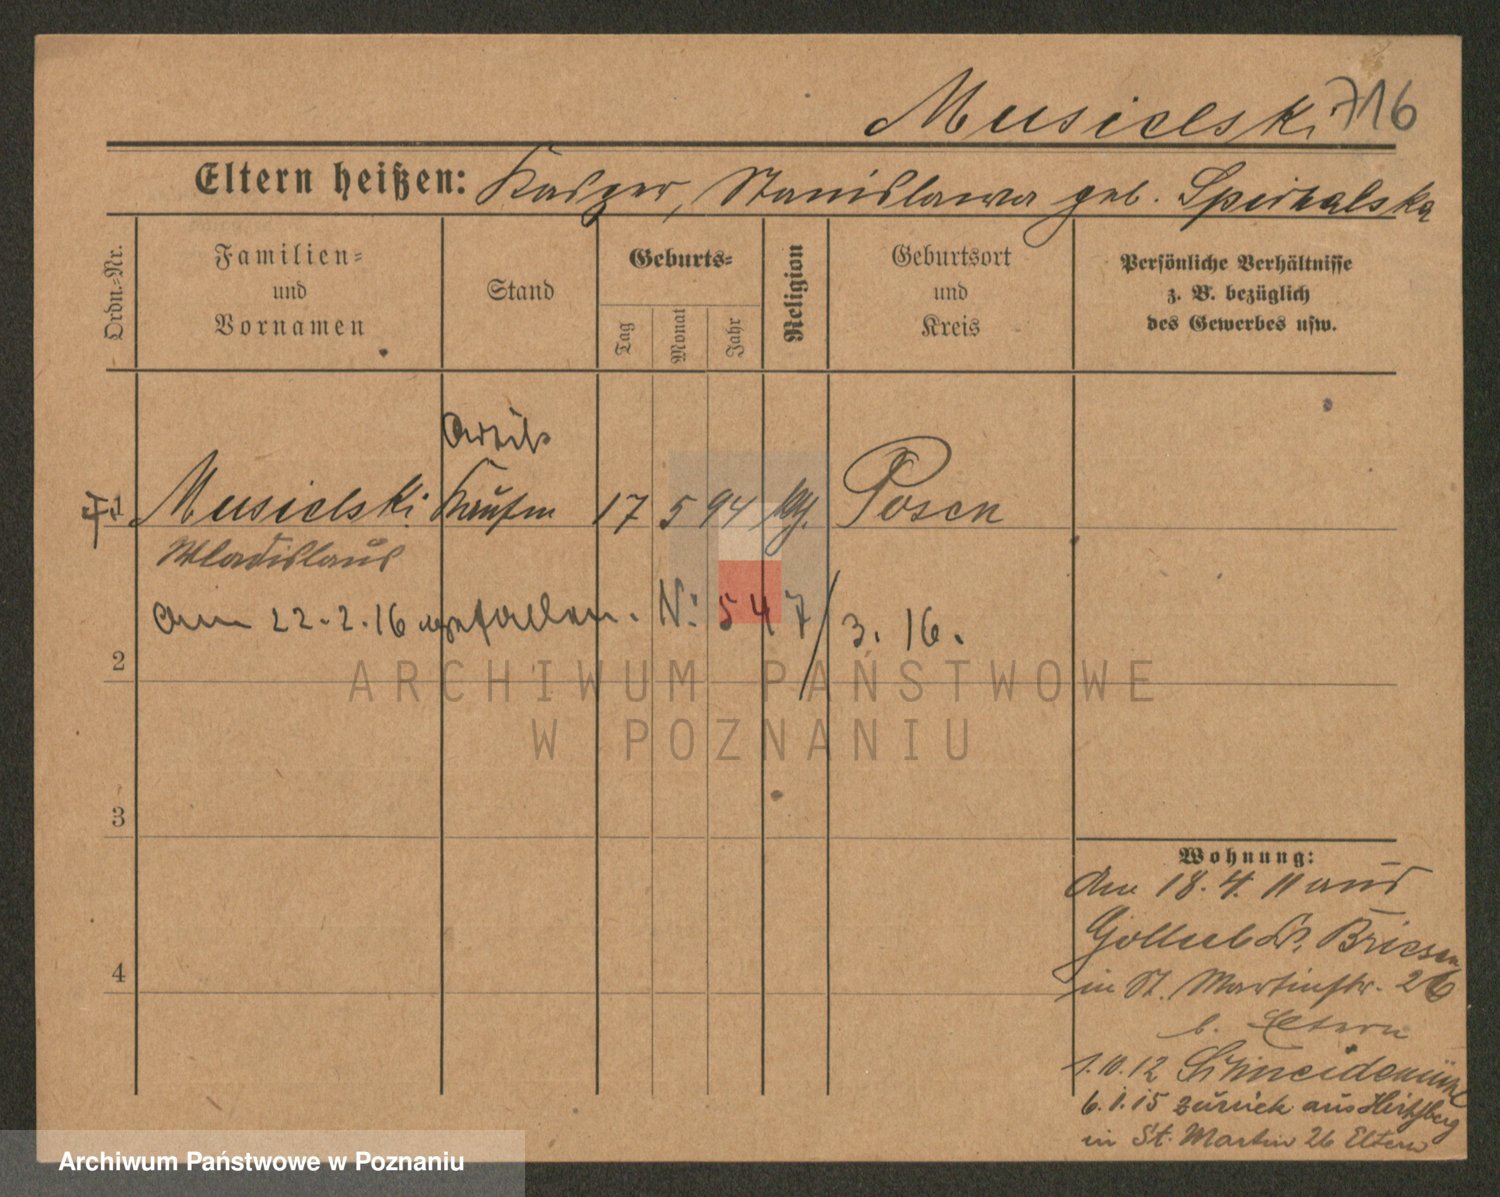 Musielski 716
Eltern heißen: Kasper, Stanislawa geb. Spirkalska
Ordn.-Nr.
Familien- und Vornamen
Stand
Geburts-
Tag
Monat
Jahr
Religion
Geburtsort und Kreis
Persönliche Verhältnisse z. B. bezüglich des Gewerbes usw.
1 Musielski Kaufm 17 5 94 Posen
Wladislaus
Am 22.2.16 gefallen. N: 547/3.16.
2
3
4
Wohnung:
Am 18.4.11 aus
Gollub Kr. Briesen
in St. Martinstr. 26
b. Eltern
1.10.12 Schneidemühl
6.1.15 zurück aus Hirschberg
in St. Martin 26 Eltern
ARCHIWUM PAŃSTWOWE
W POZNANIU
Archiwum Państwowe w Poznaniu